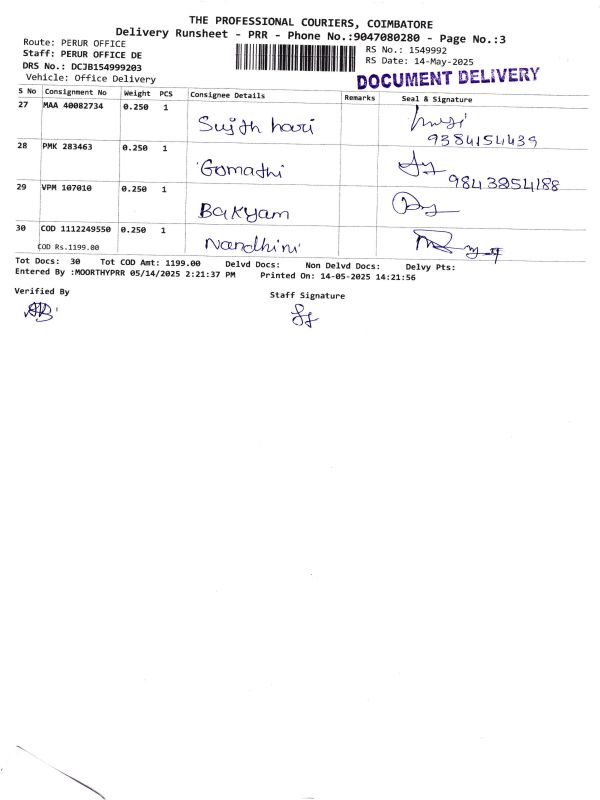 THE PROFESSIONAL COURIERS, COIMBATORE
Delivery Runsheet - PRR - Phone No.:9047080280 - Page No.:3
Route: PERUR OFFICE
RS No.: 1549992
Staff: PERUR OFFICE DE
RS Date: 14-May-2025
DRS No.: DCJB154999203
Vehicle: Office Delivery
DOCUMENT DELIVERY
S No Consignment No Weight PCS Consignee Details Remarks Seal & Signature
27 MAA 40082734 0.250 1 Sujth hari
9384154439
28 PMK 283463 0.250 1 Gomathi
9843254188
29 VPM 107010 0.250 1 Bakyam
30 COD 1112249550 0.250 1 Nandhini
COD Rs.1199.00
Tot Docs: 30 Tot COD Amt: 1199.00 Delvd Docs: Non Delvd Docs: Delvy Pts:
Entered By :MOORTHYPRR 05/14/2025 2:21:37 PM Printed On: 14-05-2025 14:21:56
Verified By
Staff Signature